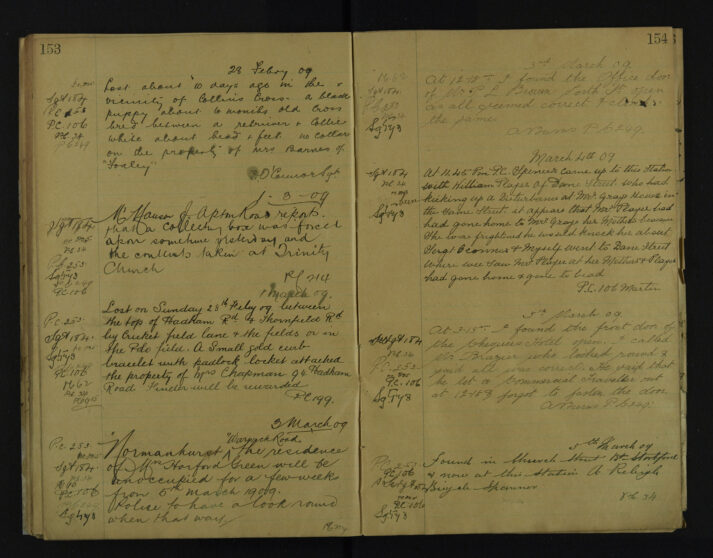 153
28 Febry 09
Lost about 10 days ago in the
vicinity of Collins Cross. a black
puppy about 6 months old Cross
bred between a retriever & Collie
white about head & feet. no collar
on the property of Mrs Barnes of
"Foxley"
O'Connor Sgt
Sgt 184
P.C. 253
P.C. 106
PC 24
PC 249
1-3-09
Mr Hauson J. Apton Road reports
that a Collecting box was forced
open sometime yesterday and
the contents taken at Trinity
Church
PC 214
Sgt 184
PC 24
PC 253
PC 249
PC 106
1 March 09.
Lost on Sunday 28th Feby 09 between
the top of Hadham Rd & Thornfield Rd
by Cricket field lane & the fields or in
the Pole field. A Small gold curb
bracelet with padlock locket attached
the property of Mrs Chapman 94 Hadham
Road Finder will be rewarded
PC 199.
P.C. 253
Sgt 184
Sgt 43
PC 106
PC 24
3 March 09
Warwick Road,
"Normanhurst" the residence
of Mrs Horford Green will be
unoccupied for a few weeks
from 5th March 1909.
Police to have a look round
when that way
P.C. 253
Sgt 184
PC 24
P.C. 106
Sgt 43
154
3rd March 09
At 12.45 I found the Office door
of Mr P L Brown North St open
as all seemed correct I closed
the same
A Burns P.C. 249.
Sgt 184
PC 253
Sgt 43
March 4th 09
At 11.45 Pm P.C. Spencer came up to this Station
with William Player of Dane Street who had
kicking up a Disturbance at Mrs Grays House in
the Same Street it appears that Mrs Player had
gone home to Mrs Grays her Mothers because
She was frightened he would knock her about
Sergt O Connor & Myself went to Dane Street
where we saw Mrs Player at her Mothers & Player
had gone home & gone to bed
P.C. 106 Martin
Sgt 184
PC 24
Sgt 43
5th March 09
At 3.15 I found the front door of
the Chequers Hotel open. I called
Mr Brazier who looked round &
found all was correct. He said that
he let a Commercial Traveller out
at 12.45 & forgot to fasten the door
A Burns P.C. 249.
Sgt 184
PC 24
P.C. 253
P.C. 106
Sgt 43
5th March 09
Found in Church Street Bp. Stortford
& now at this Station A Raleigh
Bicycle Spanner
PC 24
P.C. 253
PC 106
Sgt 184
PC 106
Sgt 43